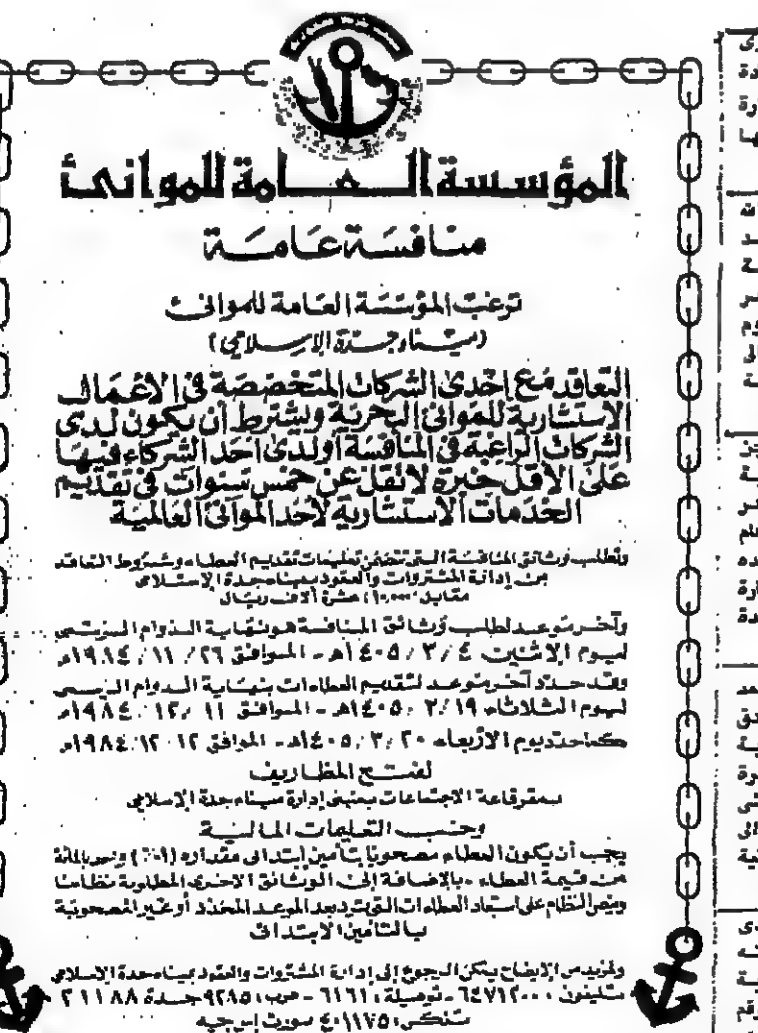 المؤسسة العامة للموانئ
منافسة عامة
ترغب المؤسسة العامة للموانئ
(ميناء جدة الإسلامي)
التعاقد مع إحدى الشركات المتخصصة في الأعمال
الاستشارية للموانئ البحرية ويشترط أن يكون لدى
الشركات الراغبة في المنافسة أو لدى أحد الشركاء فيها
على الأقل خبرة لا تقل عن خمس سنوات في تقديم
الخدمات الاستشارية لأحد الموانئ العالمية
وتطلب وثائق المنافسة التي تتضمن تعليمات تقديم العطاء وشروط التعاقد
من إدارة المشتروات والعقود بميناء جدة الإسلامي
مقابل (١٠,٠٠٠) عشرة آلاف ريال
وآخر موعد لطلب وثائق المنافسة هو نهاية الدوام الرسمي
ليوم الاثنين ١٤٠٥/٣/٤هـ - الموافق ١٩٨٤/١١/٢٦م
وقد حدد آخر موعد لتقديم العطاءات بنهاية الدوام الرسمي
ليوم الثلاثاء ١٤٠٥/٣/١٩هـ - الموافق ١٩٨٤/١٢/١١م
كما حدد يوم الأربعاء ١٤٠٥/٣/٢٠هـ - الموافق ١٩٨٤/١٢/١٢م
لفتح المظاريف
بمقر قاعة الاجتماعات بمبنى إدارة ميناء جدة الإسلامي
وحسب التعليمات المالية
يجب أن يكون العطاء مصحوبا بتأمين ابتدائي مقداره (١٪) واحد بالمائة
من قيمة العطاء - بالإضافة إلى الوثائق الأخرى المطلوبة نظاما
وينص النظام على استبعاد العطاءات التي ترد بعد الموعد المحدد أو غير المصحوبة
بالتأمين الابتدائي
ولمزيد من الإيضاح يمكن الرجوع إلى إدارة المشتروات والعقود بميناء جدة الإسلامي
تليفون : ٦٤٧١٢٠٠ - توصيلة : ٦١٦١ - ص.ب : ٩٢٨٥ جدة ٢١١٨٨
تلكس : ٤٠١١٧٥ سورت إس جيه